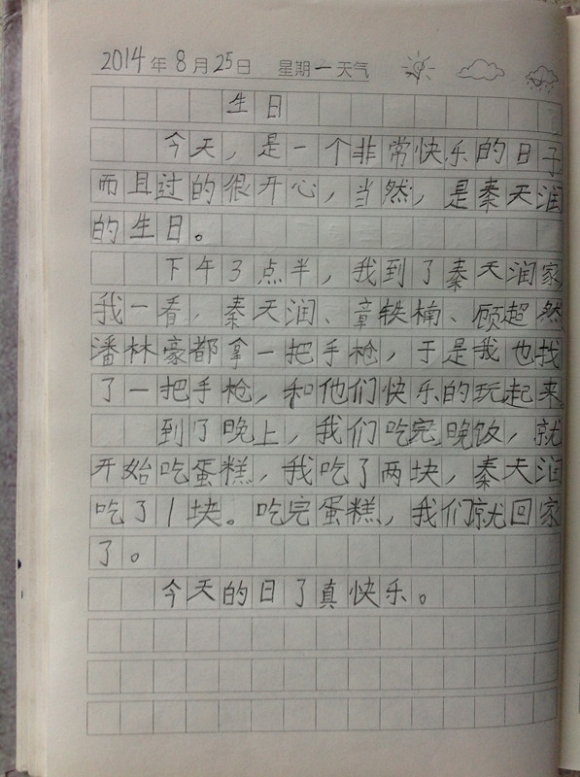 2014年8月25日 星期一天气
生日
今天，是一个非常快乐的日子
而且过的很开心，当然，是秦天润
的生日。
下午3点半，我到了秦天润家，
我一看，秦天润、章铁楠、顾超然
潘林豪都拿一把手枪，于是我也找
了一把手枪，和他们快乐的玩起来
到了晚上，我们吃完晚饭，就
开始吃蛋糕，我吃了两块，秦天润
吃了1块。吃完蛋糕，我们就回家
了。
今天的日了真快乐。